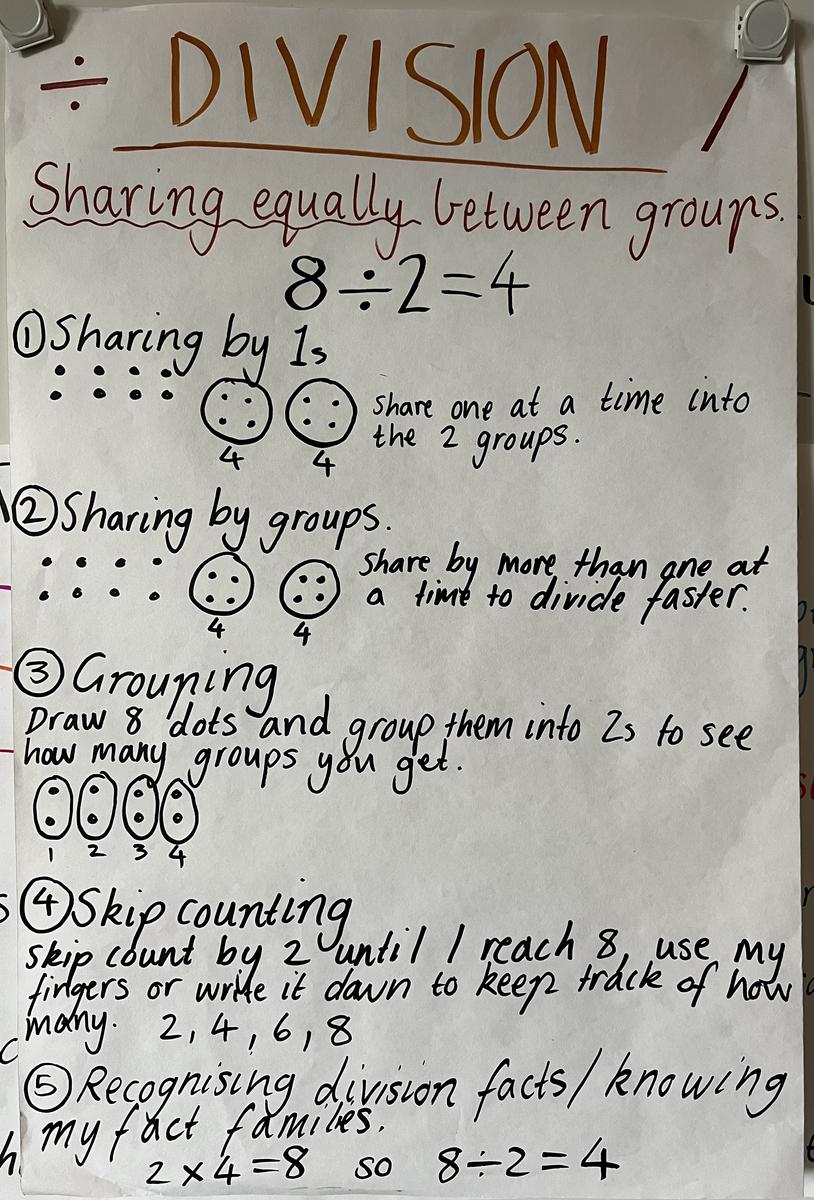 ÷ DIVISION /
Sharing equally between groups.
8÷2=4
① Sharing by 1s
Share one at a time into
the 2 groups.
4 4
② Sharing by groups.
Share by more than one at
a time to divide faster.
4 4
③ Grouping
Draw 8 dots and group them into 2s to see
how many groups you get.
1 2 3 4
④ Skip counting
Skip count by 2 until I reach 8, use my
fingers or write it down to keep track of how
many. 2, 4, 6, 8
⑤ Recognising division facts/knowing
my fact families.
2×4=8 so 8÷2=4